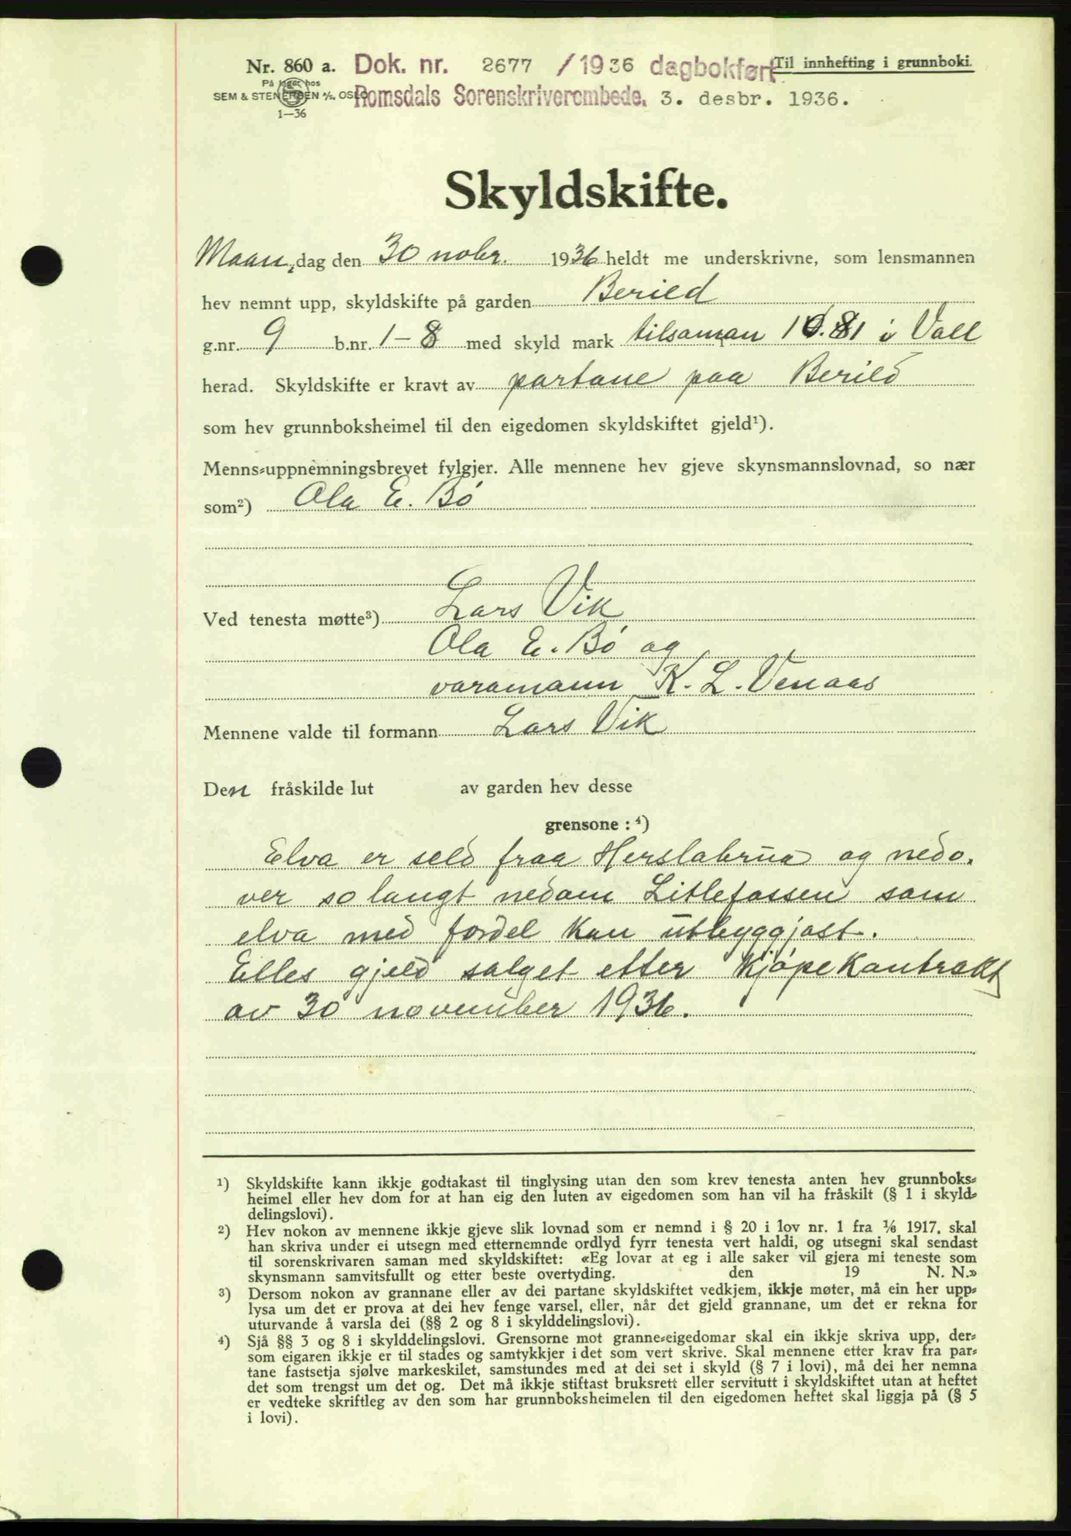 Nr. 860 a. Dok. nr. 2677 / 1936 dagbokført Til innhefting i grunnboki
På lager hos
SEM & STENERSEN A/S. OSLO Romsdals Sorenskriverembede. 3. desbr. 1936.
1—36
Skyldskifte.
Maan,dag den 30 nobr. 1936 heldt me underskrivne, som lensmannen
hev nemnt upp, skyldskifte på garden Berild
g.nr. 9 b.nr. 1-8 med skyld mark tilsaman 10.81 i Voll
herad. Skyldskifte er kravt av partane paa Berild
som hev grunnboksheimel til den eigedomen skyldskiftet gjeld¹).
Menns=uppnemningsbrevet fylgjer. Alle mennene hev gjeve skynsmannslovnad, so nær
som²) Ola E. Bø
Ved tenesta møtte³) Lars Vik
Ola E. Bø og
varamann K. L. Venaas
Mennene valde til formann Lars Vik
Den fråskilde lut av garden hev desse
grensone : ⁴)
Elva er seld fraa Herslabrua og nedo.
ver so langt nedom Litlefossen som
elva med fordel kan utbyggjast.
Elles gjeld salget etter kjøpekontrakt
av 30 november 1936.
¹) Skyldskifte kann ikkje godtakast til tinglysing utan den som krev tenesta anten hev grunnboks=
heimel eller hev dom for at han eig den luten av eigedomen som han vil ha fråskilt (§ 1 i skyld=
delingslovi).
²) Hev nokon av mennene ikkje gjeve slik lovnad som er nemnd i § 20 i lov nr. 1 fra ¹⁄₆ 1917, skal
han skriva under ei utsegn med etternemnde ordlyd fyrr tenesta vert haldi, og utsegni skal sendast
til sorenskrivaren saman med skyldskiftet: «Eg lovar at eg i alle saker vil gjera mi teneste som
skynsmann samvitsfullt og etter beste overtyding. den 19 N. N.»
³) Dersom nokon av grannane eller av dei partane skyldskiftet vedkjem, ikkje møter, må ein her upp=
lysa um det er prova at dei hev fenge varsel, eller, når det gjeld grannane, um det er rekna for
uturvande å varsla dei (§§ 2 og 8 i skylddelingslovi).
⁴) Sjå §§ 3 og 8 i skylddelingslovi. Grensorne mot granne=eigedomar skal ein ikkje skriva upp, der=
som eigaren ikkje er til stades og samtykkjer i det som vert skrive. Skal mennene etter krav fra par=
tane fastsetja sjølve markeskilet, samstundes med at dei set i skyld (§ 7 i lovi), må dei her nemna
det som trengst um det og. Det må ikkje stiftast bruksrett eller servitutt i skyldskiftet utan at heftet
er vedteke skriftleg av den som har grunnboksheimelen til den eigedomen heftet skal liggja på (§ 5
i lovi).